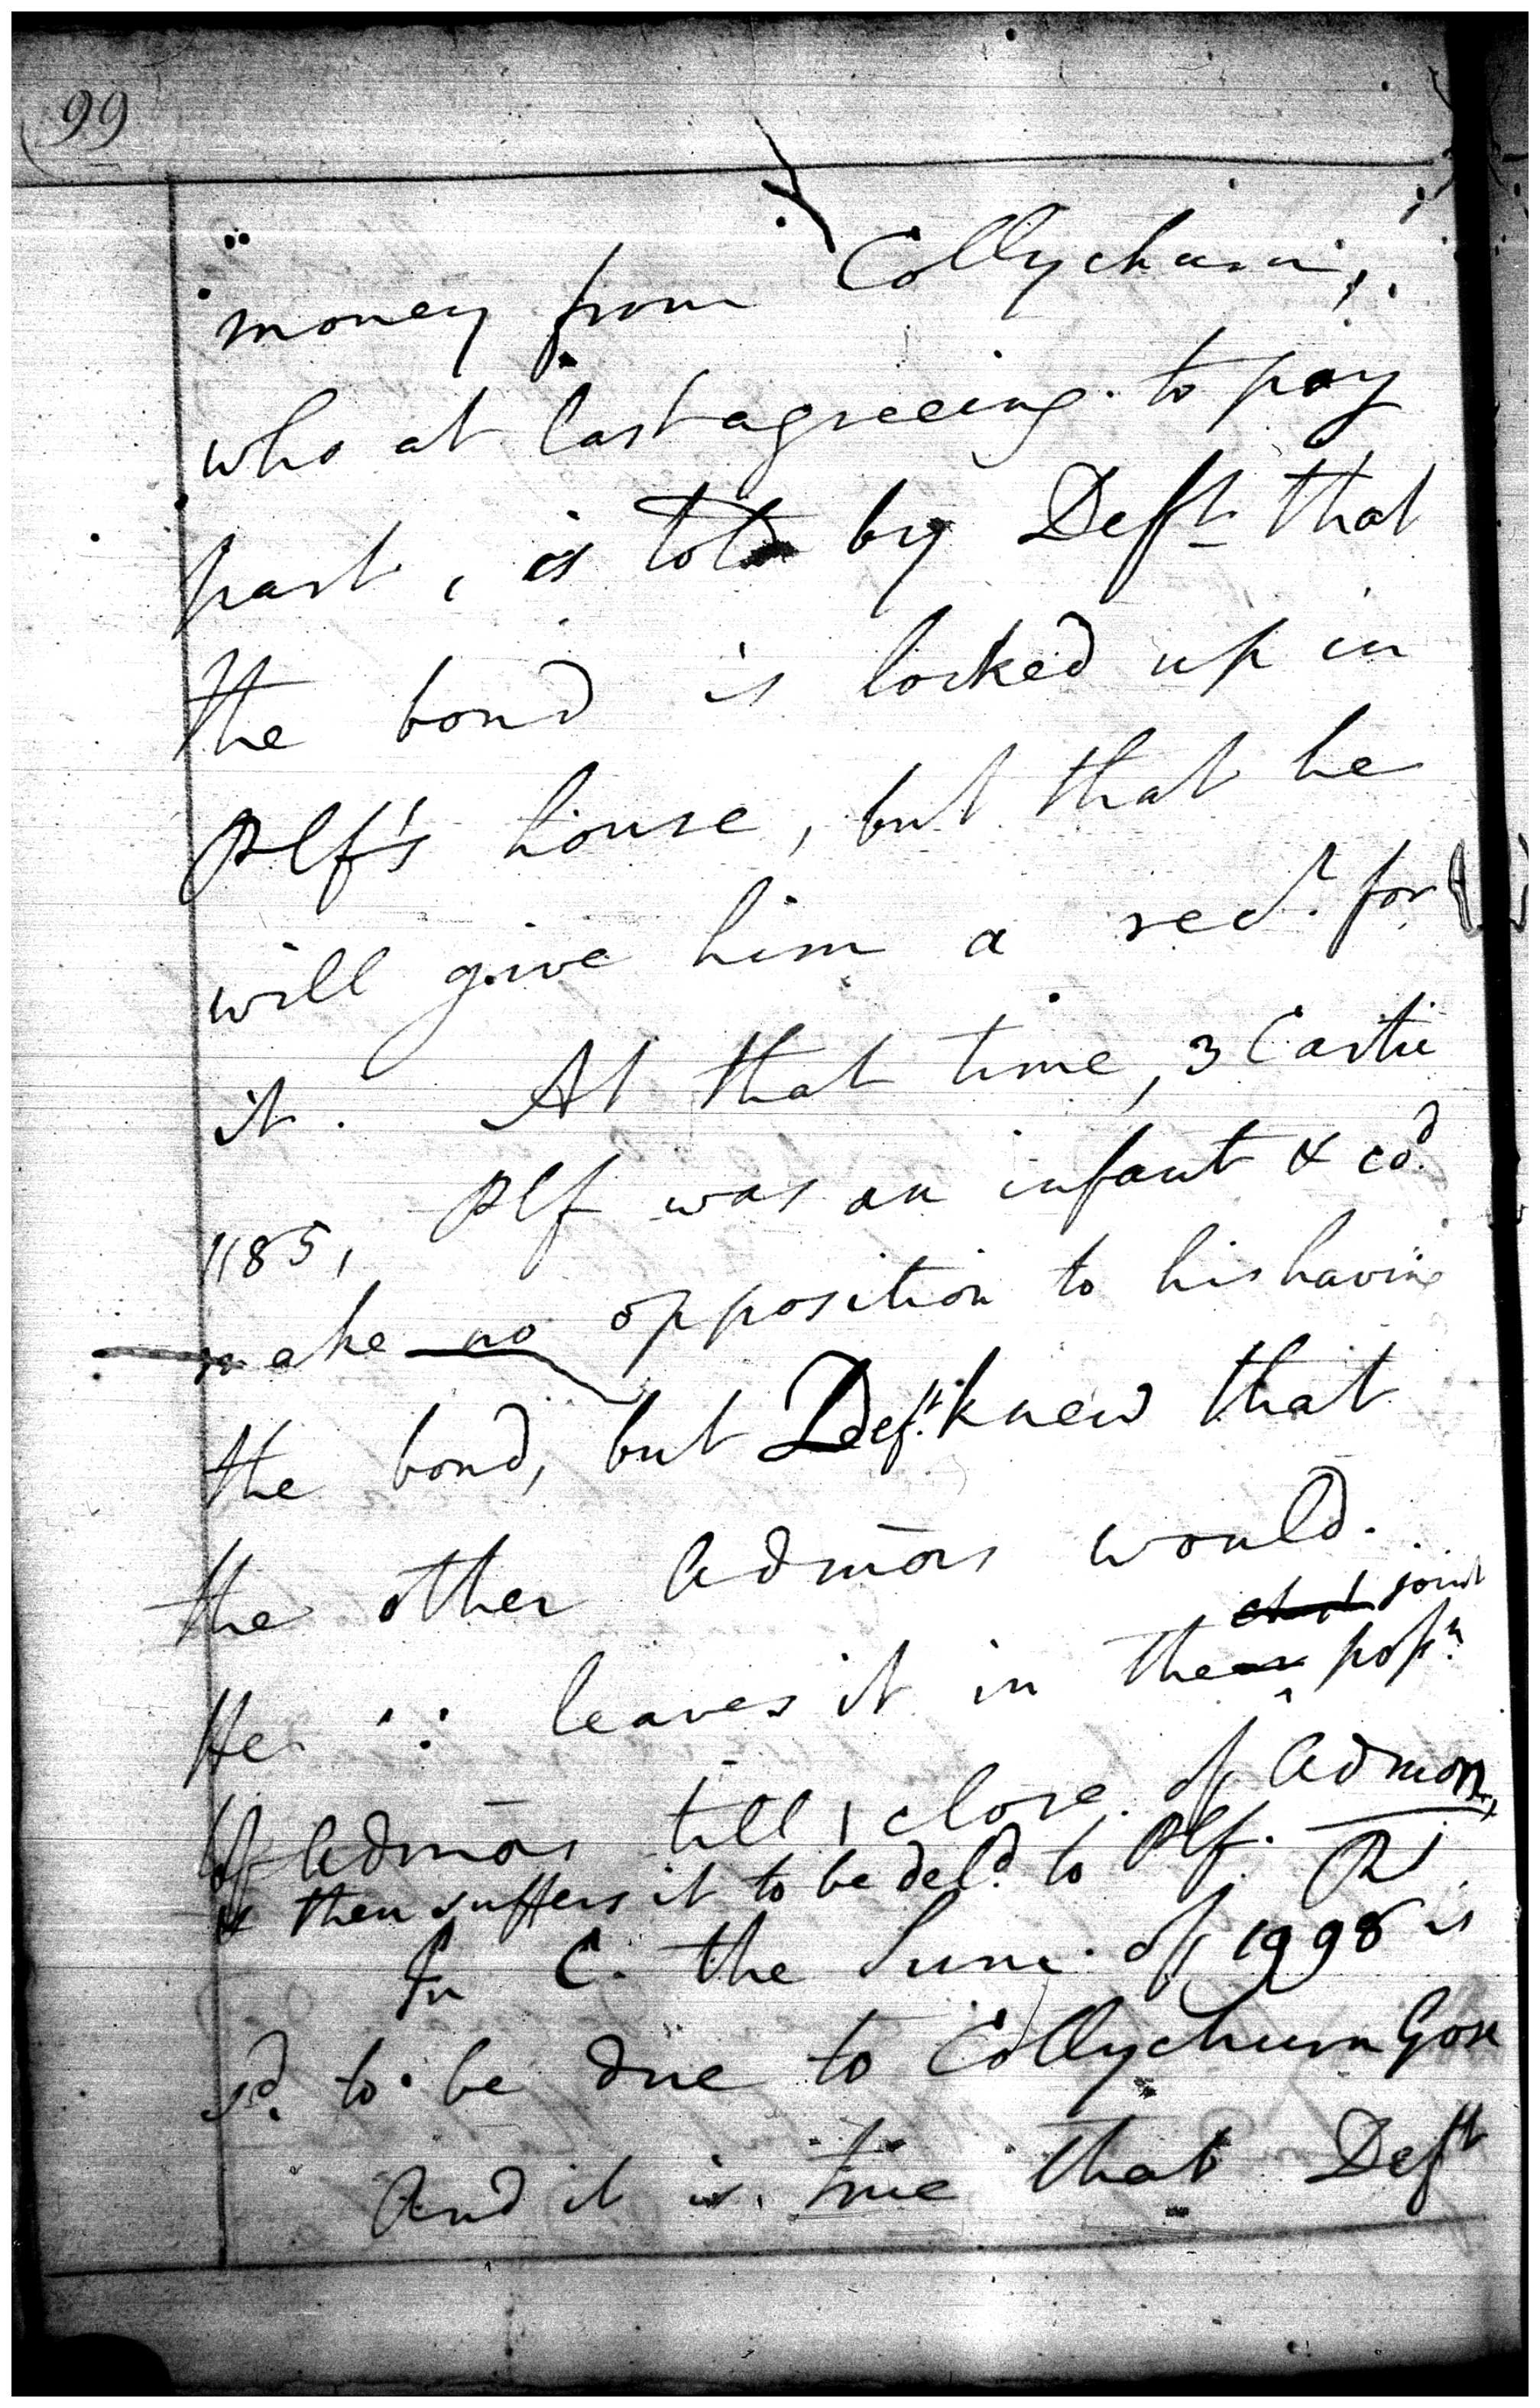 99
money from Collychurn,
who at last agreeing to pay
part, is told by Deft. that
the bond is locked up in
Plf's house, but that he
will give him a rect. for
it. At that time, 3 Cartic
1185, Plf was an infant & cod.
make no opposition to his having
the bond, but Deft. knew that
the other Admors would.
joint
He ∴ leaves it in the possn.
of Admors till close of Admon,
& then suffers it to be deld. to Plf.
In C. the Sum of 1998 is
sd. to be due to Collychurn Gose
And it is true that Deft